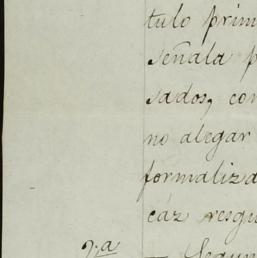 tulo prim
señala p
sados, con
no alegar
formaliza
cáz resgu
2.a
— Segun